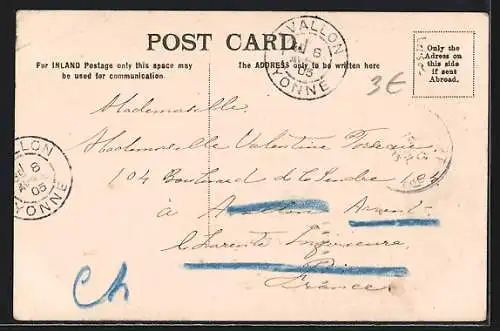 POST CARD.
For INLAND Postage only this space may
be used for communication.
The ADDRESS only to be written here
Only the
Adress on
this side
if sent
Abroad.
3€
AVALLON
6
05
YONNE
VALLON
6
05
YONNE
Mademoiselle
Mademoiselle Valentine
104 Boulevard de la 104
à Avallon
Charente Inférieure
France
Ch